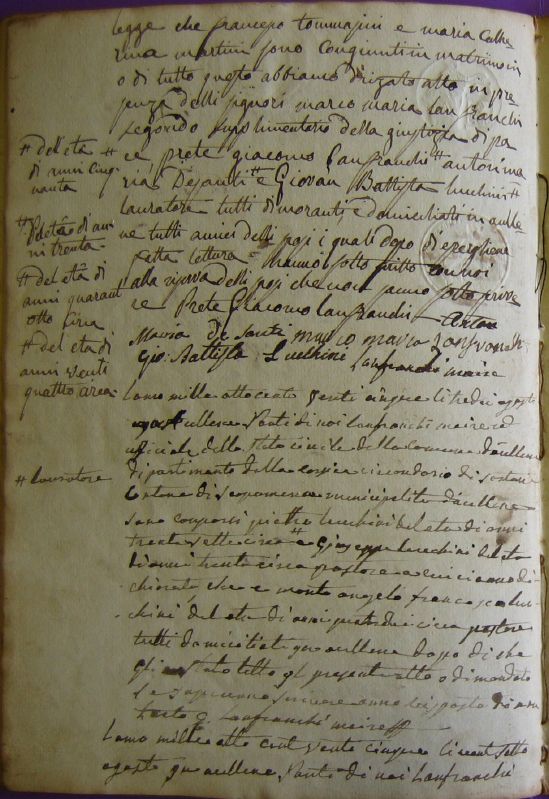 legge che francesco tommasini e maria Cathe
rina martini sono congiunti in matrimoin
o di tutto questo abbiamo drizato atto in pre
senza delli signori marco maria Lanfranchi
segretido supplimentario della giustizia di pa
ce prete giacomo Lanfranchi # antonima
ria Desanti # e Giovan Battista luchini #
lauratore tutti dimoranti e domiciliati in aulle
ne tutti amici delli sposi i quali dopo di essergliene
fatta lettura hanno sotto scritto con noi
alla riserva delli sposi che non sanno sotto scrive
re Prete Giacomo Lanfranchi Anton
Maria de Santi marco maria Lanfranchi
Gio: Battista Luchini Lanfranchi maire
# dell età
di anni cinq
uanta
# dell età di an
ni trenta
# del età di
anni quarant
otto circa
# del età di
anni venti
quattro circa
L ano mille otto cento venti cinque li tredici agosto
aullene vanti di noi lanfranchi maire ed
uficiale dello stato civile della comuna d'aullene
dipartimento della corsica circondario di sartene
Cantone di scopamena municipalità d'aullene
sono comparsi pietro lucchini del età di anni
trenta sette circa # e Giuseppe lucchini del età
di anni trenta circa pastore a cui ci anno di
chiarato che e morto angelo francesco luc
chini del età di anni quatordici circa pastore
tutti domiciliati quo aullene dopo di che
gli e stato letto il presente atto e dimandato
se sapevano scrivere anno risposto di non
Lanfranchi maire
# lauratore
L ano mille otto cent vente cinque li vent sette
agosto quo aullene vanti di noi Lanfranchi